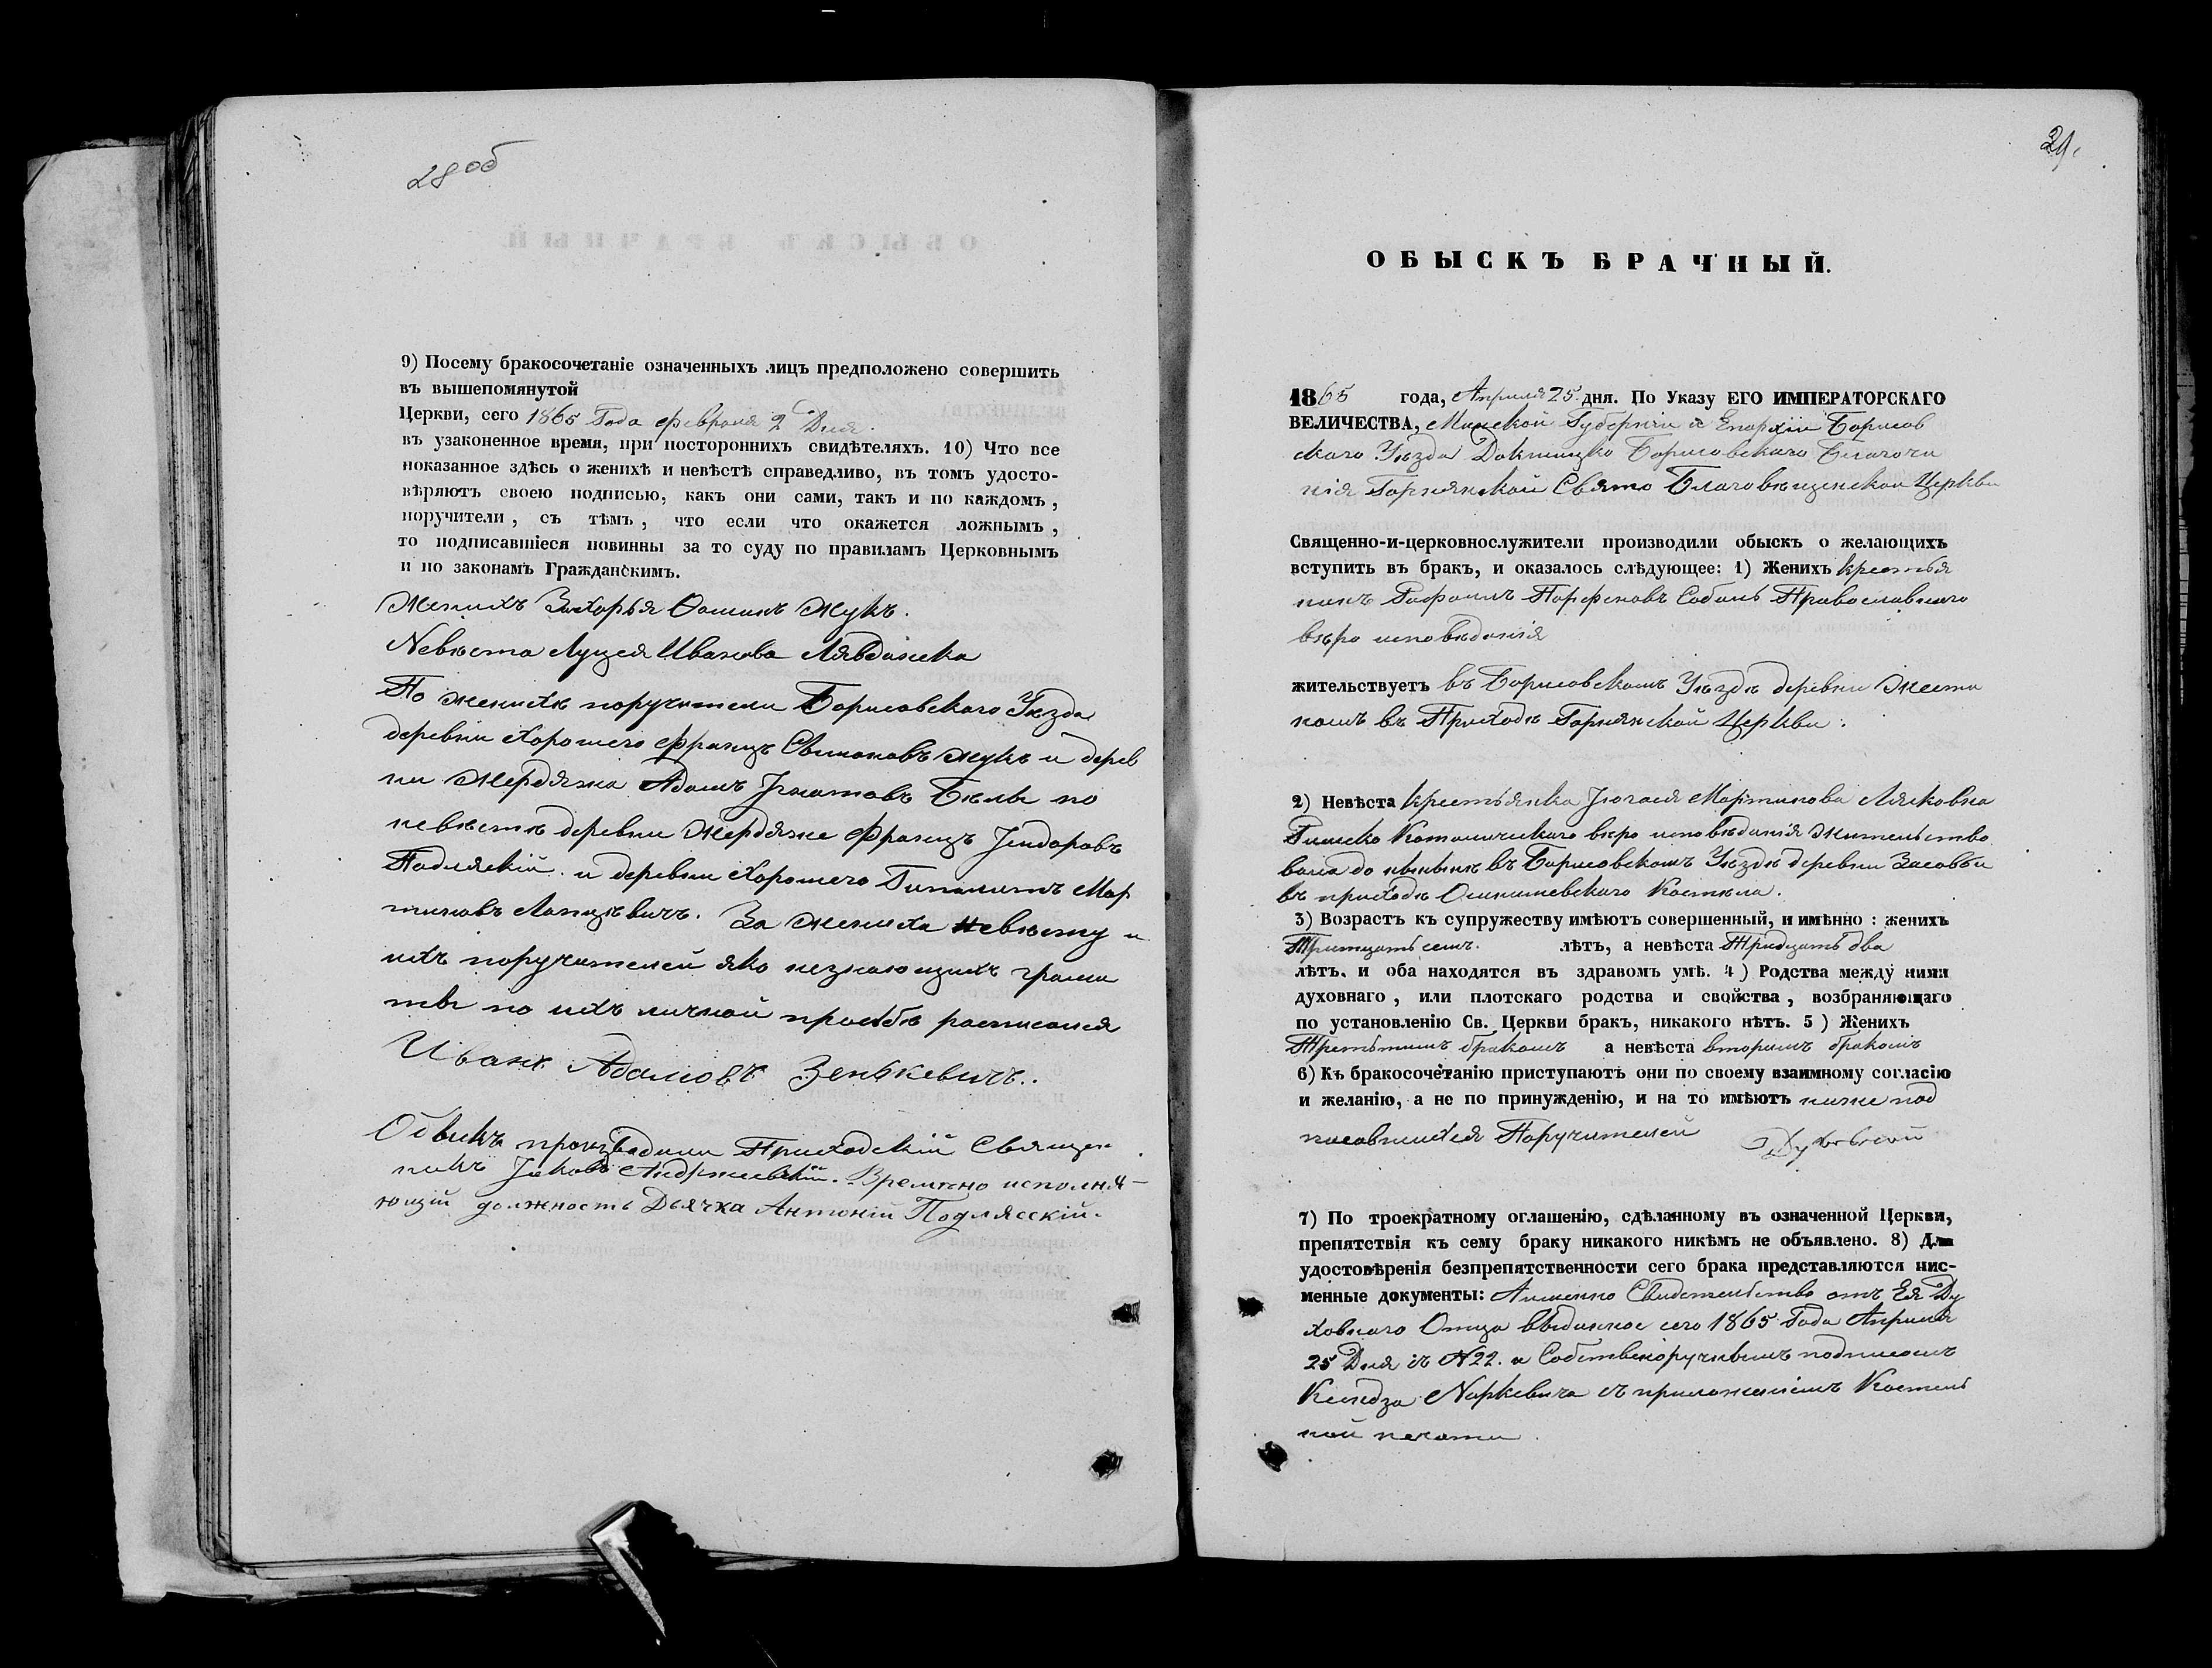 28 об
9) Посему бракосочетаніе означенныхъ лицъ предположено совершить
въ вышепомянутой
Церкви, сего 1865 Года февраля 2 Дня.
въ узаконенное время, при постороннихъ свидѣтеляхъ. 10) Что все
показанное здѣсь о женихѣ и невѣстѣ справедливо, въ томъ удосто-
вѣряютъ своею подписью, какъ они сами, такъ и по каждомъ,
поручители, съ тѣмъ, что если что окажется ложнымъ,
то подписавшіеся повинны за то суду по правиламъ Церковнымъ
и по законамъ Гражданскимъ.
Женихъ Захорья Жукъ.
Невѣста Луцея Иванова
По женихѣ поручители Борисовскаго Уѣзда
деревни Хорошего Францъ Жукъ и дерев
ни Мердяжа Адамъ Игнатовъ Бѣлы по
невѣстѣ деревни Мердяже Францъ Исидоровъ
Подляскій и деревни Хорошего Мар
тиновъ. За жениха невѣсту и
ихъ поручителей яко незнающихъ грамо
ты по ихъ личной прозьбѣ росписался
Иванъ Адамовъ Зенькевичъ..
Обыкъ производили Приходскій Священ
никъ Іаковъ Андржеевскій. Времѣнно исполня-
ющій должность Дьячка Антоній Подлясскій.
29.
ОБЫСКЪ БРАЧНЫЙ.
1865 года, Апрѣля 25 дня. По Указу ЕГО ИМПЕРАТОРСКАГО
ВЕЛИЧЕСТВА, Минской Губерніи и Епархіи Борисов
скаго Уѣзда Докшицко Борисовскаго Благочи
нія Горнянской Свято Благовѣщенской Церкви
Священно-и-церковнослужители производили обыскъ о желающихъ
вступить въ бракъ, и оказалось слѣдующее: 1) Женихъ крестья
нинъ Парфеновъ Соболь Православнаго
вѣро исповѣданія
жительствуетъ въ Борисовскомъ Уѣздѣ деревни
въ Приходѣ Горнянской Церкви.
2) Невѣста крестьянка Мартинова
Римско Католическаго вѣро исповѣданія жительство
вала до нынѣ въ Борисовскомъ Уѣздѣ деревни
въ приходѣ Костѣла.
3) Возрастъ къ супружеству имѣютъ совершенный, и имѣнно: женихъ
Тритцать семъ. лѣтъ, а невѣста Тридцать два
лѣтъ. и оба находятся въ здравомъ умѣ. 4) Родства между ними
духовнаго, или плотскаго родства и свойства, возбраняющаго
по установленію Св. Церкви бракъ, никакого нѣтъ. 5) Женихъ
Третьимъ бракомъ а невѣста вторымъ бракомъ
6) Къ бракосочетанію приступаютъ они по своему взаимному согласію
и желанію, а не по принужденію, и на то имѣютъ ниже под
писовшихся Поручителей
7) По троекратному оглашенію, сдѣланному въ означенной Церкви,
препятствія къ сему браку никакого никѣмъ не объявлено. 8) Для
удостовѣренія безпрепятственности сего брака представляются пис-
менные документы: Аименно Свидетельство отъ Ея Ду
ховнаго Отца выданное сего 1865 Года Апрѣля
25 Дня съ N22. и Собственоручнымъ подписомъ
Ксендза Наркевича съ приложеніемъ Костель
ной печати.